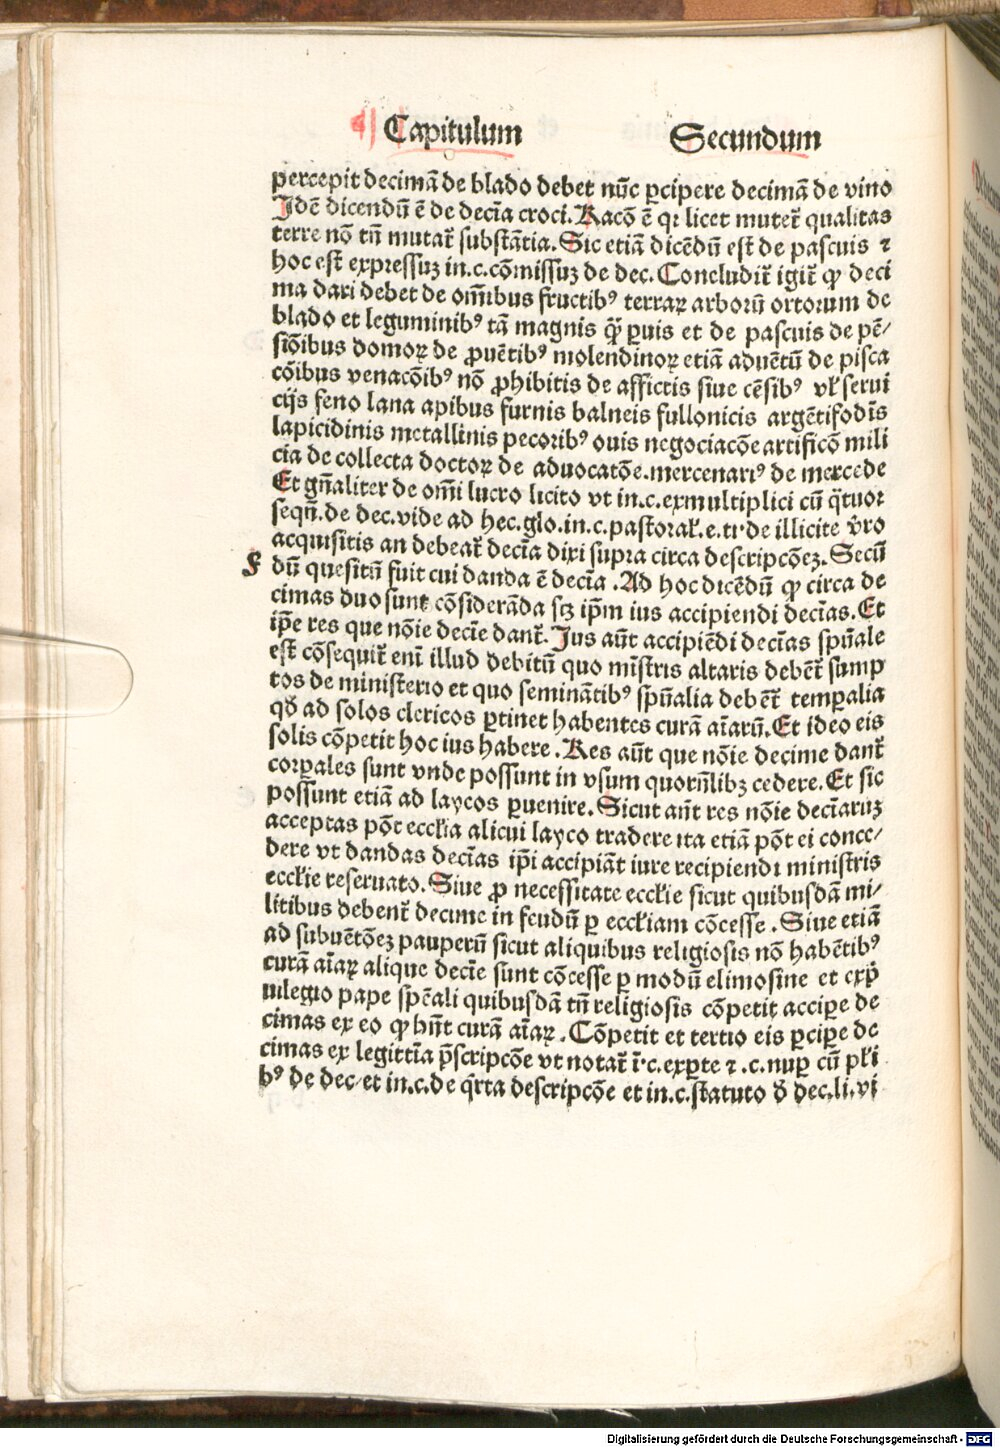 Capitulum Secundum
percepit decimā de blado debet nūc ꝑcipere decimā de vino
Idē dicendū ē de decīa croci. Racō ē qꝛ licet muter̄ qualitas
terre nō tn̄ mutar̄ substātia. Sic etiā dicēdū est de pascuis ⁊
hoc est expressuꝫ in.c.cōmissuꝫ de dec. Concludir̄ igir̄ ꝙ deci
ma dari debet de om̄ibus fructibꝰ terraꝝ arborū ortorum de
blado et leguminibꝰ tā magnis ꝙ̄ ꝑuis et de pascuis de pē/
siōibus domoꝝ de ꝓuētibꝰ molendinoꝝ etiā aduētū de pisca
cōibus venacōibꝰ nō ꝓhibitis de affictis siue cēsibꝰ vl̄ serui
cijs feno lana apibus furnis balneis fullonicis argētifodīs
lapicidinis metallinis pecoribꝰ ouis negociacōe artificō mili
cia de collecta doctoꝝ de aduocatōe.mercenariꝰ de mercede
Et gn̄aliter de om̄i lucro licito vt in.c.exmultiplici cū q̄tuor
seqn̄.de dec.vide ad hec.glo.in.c.pastoral̄.e.ti·de illicite v̄ro
acquisitis an debear̄ decīa dixi supra circa descripcōeꝫ. Secū
dū quesitū fuit cui danda ē decīa . Ad hoc dicēdū ꝙ circa de
cimas duo sunt cōsiderāda scꝫ ip̄m ius accipiendi decīas. Et
ip̄e res que nōie decīe dant̄. Jus aūt accipiēdi decīas spūale
est cōsequit̄ eni illud debitū quo mīstris altaris debēt̄ sump
tos de ministerio et quo seminātibꝰ spūalia debēt̄ temꝑalia
qd̄ ad solos clericos ꝑtinet habentes curā aīarū. Et ideo eis
solis cōpetit hoc ius habere . Res aūt que nōie decime dant̄
corꝑales sunt vnde possunt in vsum quorūlibꝫ cedere. Et sic
possunt etiā ad laycos ꝑuenire. Sicut aūt res nōie decīaruꝫ
acceptas pōt eccl̄ia alicui layco tradere ita etiā pōt ei conce/
dere vt dandas decīas ip̄i accipiāt iure recipiendi ministris
eccl̄ie reseruato. Siue ꝓ necessitate eccl̄ie sicut quibusdā mi/
litibus debent̄ decime in feudū ꝑ eccl̄iam cōcesse . Siue etiā
ad subuētōeꝫ pauperū sicut aliquibus religiosis nō habētibꝰ
curā aīaꝝ alique decīe sunt cōcesse ꝑ modū elimosine et ex pͥ
uilegio pape spēali quibusdā tn̄ religiosis cōpetit acciꝑe de
cimas ex eo ꝙ hn̄t curā aīaꝝ . Cōpetit et tertio eis ꝑciꝑe de
cimas ex legittīa p̄scripcōe vt notat̄ ī·c.exꝑte ⁊ .c.nuꝑ cū pl̄i
bꝰ de dec/et in.c.de q̄rta descripcōe et in.c.statuto d̄ dec.li.vi
f
Digitalisierung gefördert durch die Deutsche Forschungsgemeinschaft - DFG